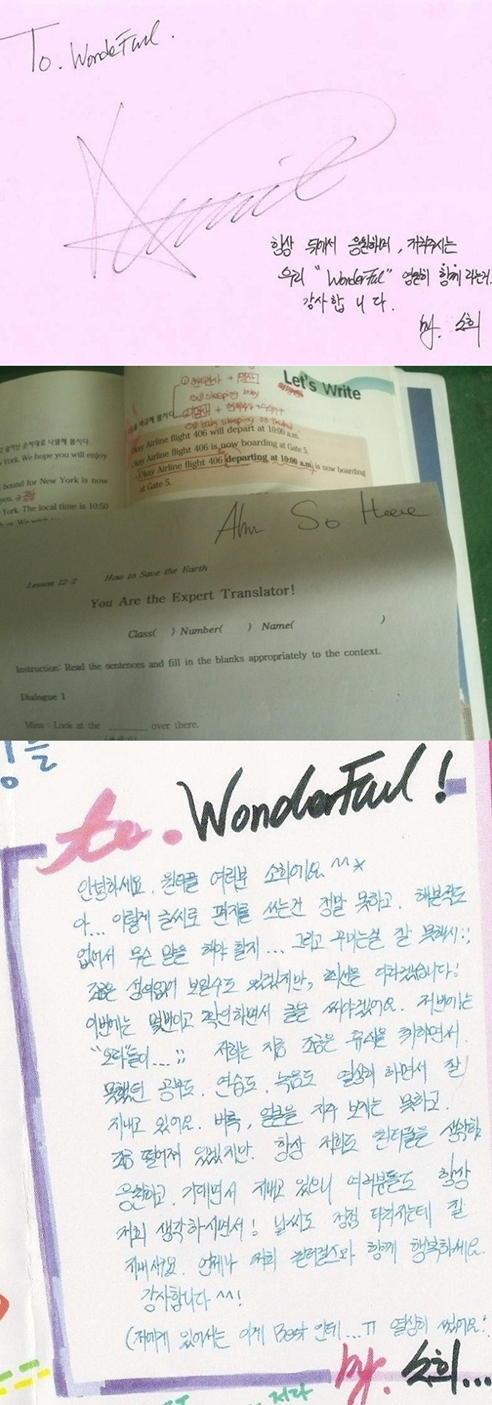 To. WonderFul.
항상 뒤에서 응원하며, 지켜주시는
우리 "WonderFul" 영원히 함께 라는거.
감사합니다.
by. 소희
Let's Write
+ 명사
a sleeping baby
Okay Airline flight 406 will depart at 10:00 a.m.
Okay Airline flight 406 is now boarding at Gate 5.
Okay Airline flight 406 departing at 10:00 a.m. is now boarding
at Gate 5.
York. We hope you will enjoy
bound for New York is now
you.
York. The local time is 10:50
Ahn So Heee
Lesson 12-2 How to Save the Earth
You Are the Expert Translator!
Class( ) Number( ) Name( )
Instruction: Read the sentences and fill in the blanks appropriately to the context.
Dialogue 1
Mina : Look at the ________ over there.
to. WonderFul!
안녕하세요. 원더풀 여러분 소희에요 ^^*
아... 이렇게 글씨로 편지를 쓰는건 정말 못하고. 해본적도
없어서 무슨 말을 해야 할지... 그리고 꾸미는걸 잘 못해서;;
조금은 성의없이 보일수도 있겠지만, 최선을 다하겠습니다!
이번에는 몇번이고 확인하면서 글을 써야겠어요. 저번에는
"오타"들이...;; 저희는 지금 조금은 휴식을 취하면서.
못했던 공부도. 연습도. 녹음도 열심히 하면서 잘
지내고 있어요. 비록, 여러분을 자주 보지는 못하고.
조금 떨어져 있겠지만. 항상 저희도 원더풀을 생각하
응원하고. 기대면서 지내고 있으니 여러분들도 항상
저희 생각하시면서! 날씨도 점점 더워지는데 잘
지내세요. 언제나 저희 원더걸스와 함께 행복하세요.
감사합니다 ^^!
(저에게 있어서는 이게 Best 인데...ㅠ 열심히 썼어요.
by. 소희...